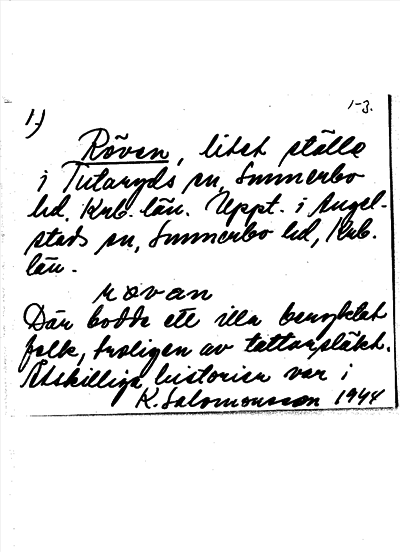 1.)
1-3.
Röven, litet ställe
i Tutaryds sn, Sunnerbo
hd. Krb. län. Uppt. i Angel-
stads sn, Sunnerbo hd, Krb.
län.
rövan
Där bodde ett illa beryktat
folk, troligen av tattarsläkt.
Åtskilliga historier var i
K. Salomonsson 1944